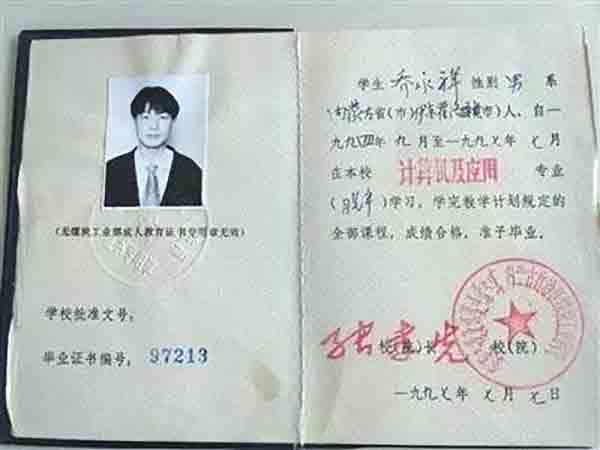 (无煤炭工业部成人教育证书专用章无效)
学校批准文号:
毕业证书编号: 97213
学生 乔永祥 性别 男 系
内蒙古省(市) 人,自一
九九四年 九 月至一九九七年 七 月
在本校 计算机及应用 专业
(脱产)学习,学完教学计划规定的
全部课程,成绩合格,准予毕业。
校(院)长 校(院)
一九九七年 七 月 七 日